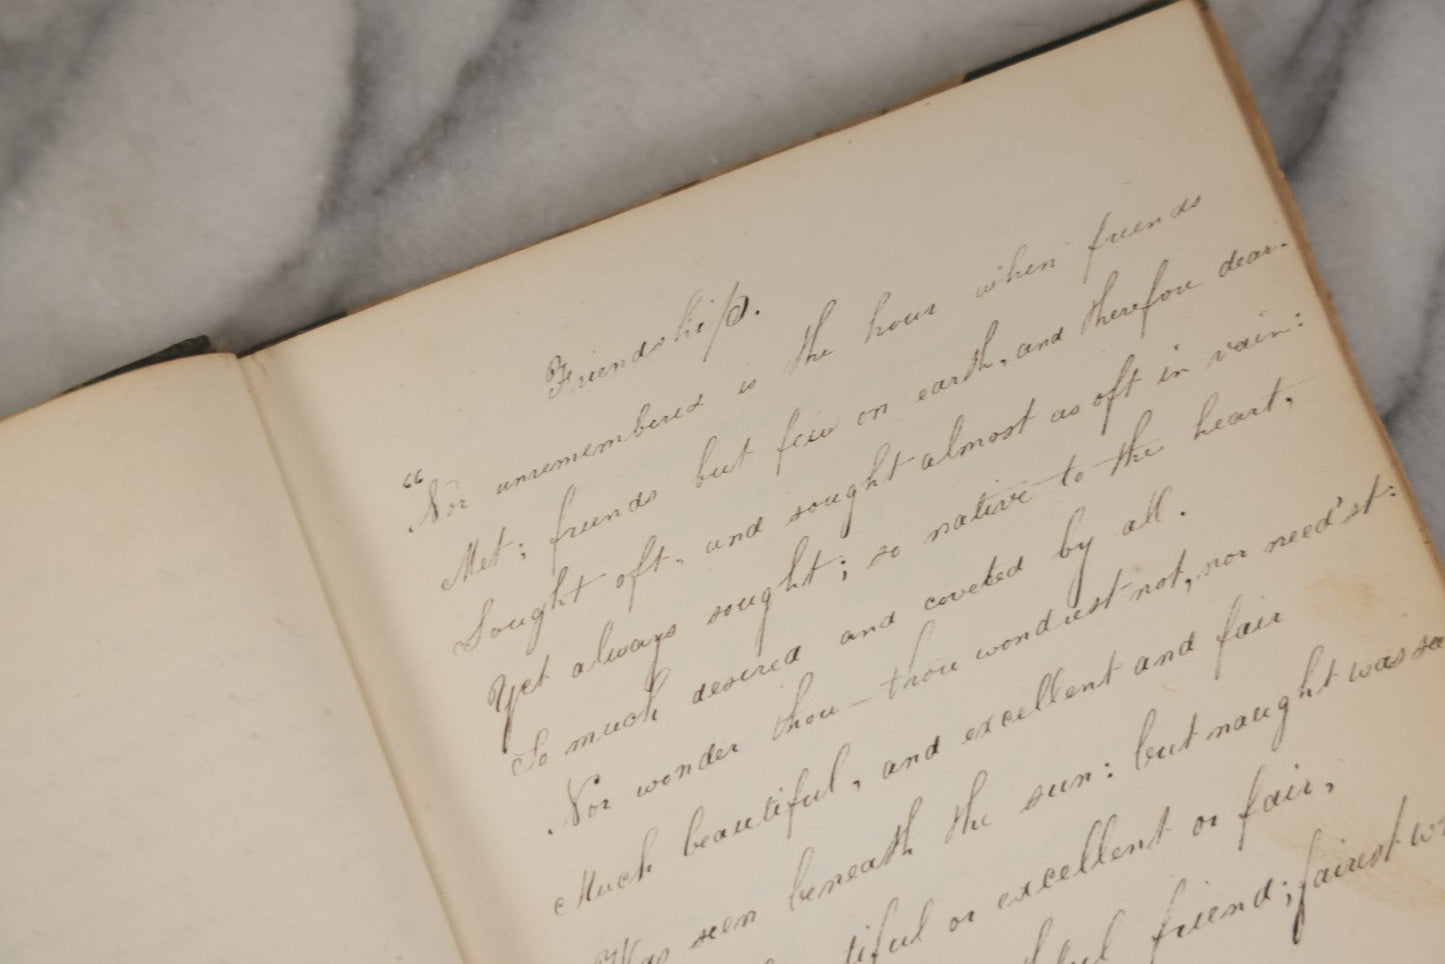 Friendship.
"Nor unremembered is the hour when friends
Met; friends but few on earth, and therefore dear.
Sought oft, and sought almost as oft in vain:
Yet always sought; so native to the heart,
So much desired and coveted by all.
Nor wonder thou — thou wondrest not, nor need'st:
Much beautiful, and excellent and fair
Was seen beneath the sun: but naught was
or excellent or fair,
friend; fairest